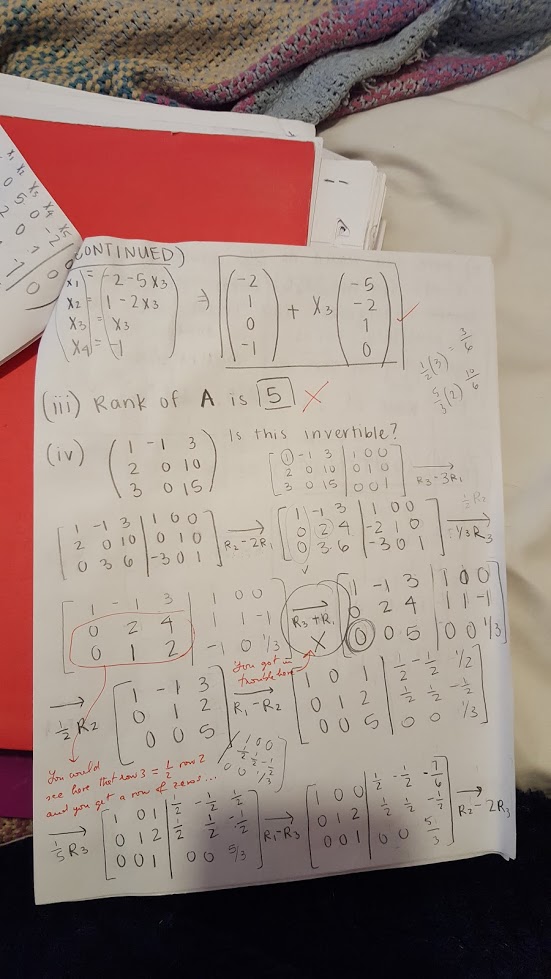 CONTINUED)
x₁ = -2-5x₃
x₂ = 1-2x₃
x₃ = x₃
x₄ = -1
⇒ (-2 1 0 -1) + x₃ (-5 -2 1 0) ✓
1/2 (3) = 3/6
5/3 (2) 10/6
(iii) Rank of A is 5 X
(iv) Is this invertible?
1 -1 3
2 0 10
3 0 15
1 -1 3 | 1 0 0
2 0 10 | 0 1 0
3 0 15 | 0 0 1
R₃-3R₁
1 -1 3 | 1 0 0
2 0 10 | 0 1 0
0 3 6 | -3 0 1
R₂-2R₁
1 -1 3 | 1 0 0
0 2 4 | -2 1 0
0 3 6 | -3 0 1
1/2 R₂
1/3 R₃
1 -1 3 | 1 0 0
0 2 4 | 1 1 -1
0 1 2 | -1 0 1/3
R₃+R₁
X
1 -1 3 | 1 0 0
0 2 4 | 1 1 -1
0 0 5 | 0 0 1/3
You got in
trouble here
1/2 R₂
1 -1 3
0 1 2
0 0 5
1 0 0
1/2 1/2 -1/2
0 0 1/3
R₁-R₂
1 0 1 | 1/2 -1/2 1/2
0 1 2 | 1/2 1/2 -1/2
0 0 5 | 0 0 1/3
You would
see here that row 3 = 1/2 row 2
and you get a row of zeros...
1/5 R₃
1 0 1 | 1/2 -1/2 1/2
0 1 2 | 1/2 1/2 -1/2
0 0 1 | 0 0 5/3
R₁-R₃
1 0 0 | 1/2 -1/2 -7/6
0 1 2 | 1/2 1/2 -1/2
0 0 1 | 0 0 5/3
R₂-2R₃